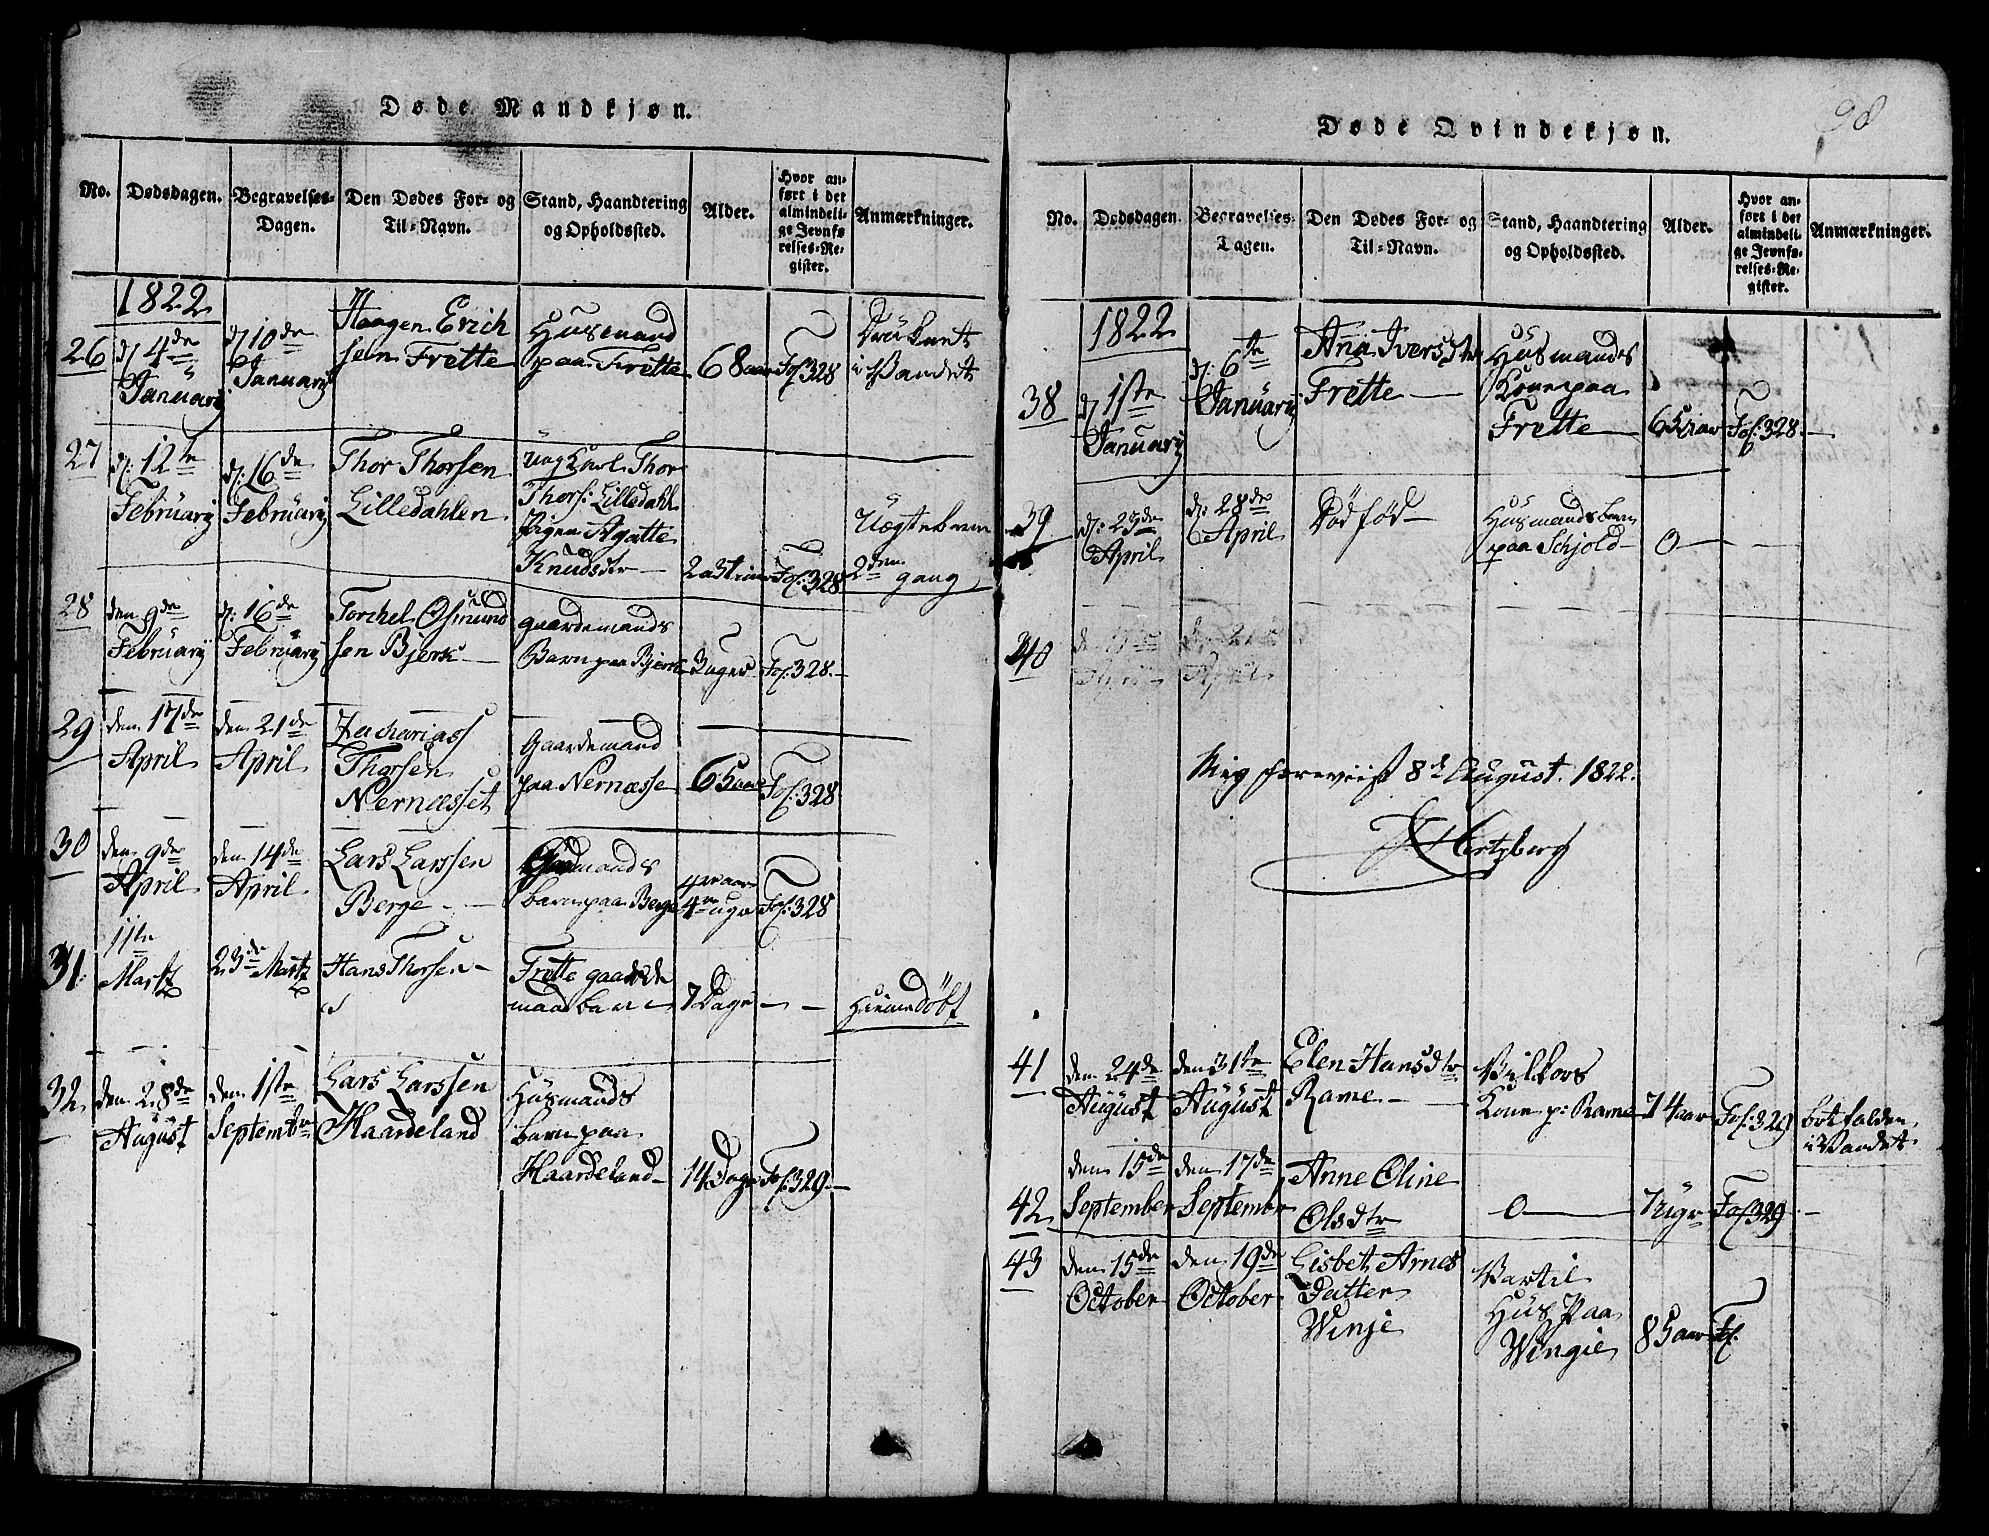 Døde Mandkjøn.
No.
Dødsdagen.
Begravelses-
Dagen.
Den Dødes For- og
Til-Navn.
Stand, Haandtering
og Opholdssted.
Alder.
Hvor an-
ført i det
almindeli-
ge Jevnfø-
relses-Re-
gister.
Anmærkninger.
1822
26
d/ 4de
Januarij
d/ 10de
Januarij
Haagen Erich
sen Frette
Husmand
paa Frette
68 aar
Fol. 328
Drüknet
i Vandet
27
d/: 12te
Februarij
d/: 16de
Februarij
Thor Thorsen
Lilledahlen
Ung Karl Thor
Thors: Lilledahl
Pigen Agatte
Knudsdtr
Fol. 328
Uægtebarn
2den gang
28
den 9de
Februarij
d/: 16de
Februarij
Torchel Osmund
sen Bjerk
gaardemands
Barn paa Bjerk
3 Dager
Fol. 328.
29
den 17de
April
den 21de
April
Zacharias
Thorsen
Nernæsset
Gaardemand
paa Nernæsse
65 aar
Fol. 328
30
den 9de
April
den 14de
April
Lars Larssen
Berge
barn paa Berge
4 ugr
Fol. 328
31
11te
Martz
23de Martz
Hans Thorsen
Frette gaarde
mands barn
7 Dage
Hiemedöbt
32
den 28de
August
den 1ste
Septembr
Lars Larssen
Haardeland
Husmands
barn paa
Haardeland
14 Dage
Fol. 329.
98
Døde Qvindekjøn.
No.
Dødsdagen.
Begravelses-
Dagen.
Den Dødes For- og
Til-Navn.
Stand, Haandtering
og Opholdssted.
Alder.
Hvor an-
ført i det
almindeli-
ge Jevnfø-
relses-Re-
gister.
Anmærkninger.
1822
38
d/ 1ste
Januarij
d/: 6te
Januarij
Ana Iversdtr
Frette
Husmandes
Kone paa
Frette
65 aar
Fol. 328.
39
d/: 23de
April
d/: 28de
April
Dödföd
Husmands barn
paa Schjold
0
40
April
Mig foreviist 8d August. 1822.
Hertzberg
41
den 24de
August
den 31te
August
Elen Hansdtr
Rame
Kone p: Rame
74 aar
Fol. 329
bortfalden
i Vandet
42
den 15de
September
den 17de
Septembr
Anne Oline
Olsdtr
0
Fol. 329
43
den 15de
October
den 19de
October
Lisbet Arnes
Datter
Winje
Hus Paa
Wingie
85 aar
Fol.